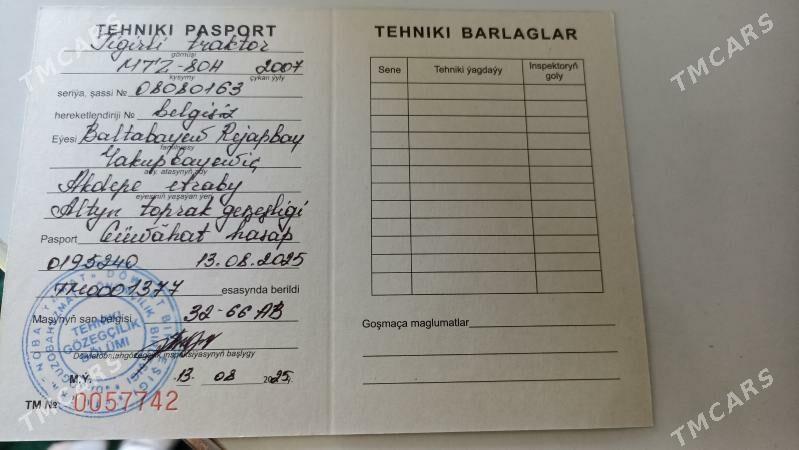 TEHNIKI PASPORT
Tigirli traktor
görnüşi
MTZ-80H 2007
kysymy çykan ýyly
seriýa, şassi № 08080163
hereketlendiriji № belgisiz
Eýesi Baltabaýew Rejapbaý
familiýasy
Ýakupbaýewiç
ady, atasynyň ady
Akdepe etraby
eýesiniň ýaşaýan ýeri
Altyn toprak geňeşligi
Pasport Güwähat hasap
0195240 13.08.2025
TM0001377 esasynda berildi
Maşynyň san belgisi 32-66 AB
Döwletobatangözegçilik inspeksiýasynyň başlygy
M.Ý. 13 08 2025ý.
TM № 0057742
TEHNIKI GÖZEGÇILIK BÖLÜMI
TEHNIKI BARLAGLAR
Sene Tehniki ýagdaýy Inspektoryň goly
Goşmaça maglumatlar
TMCARS
TMCARS
TMCARS
TMCARS